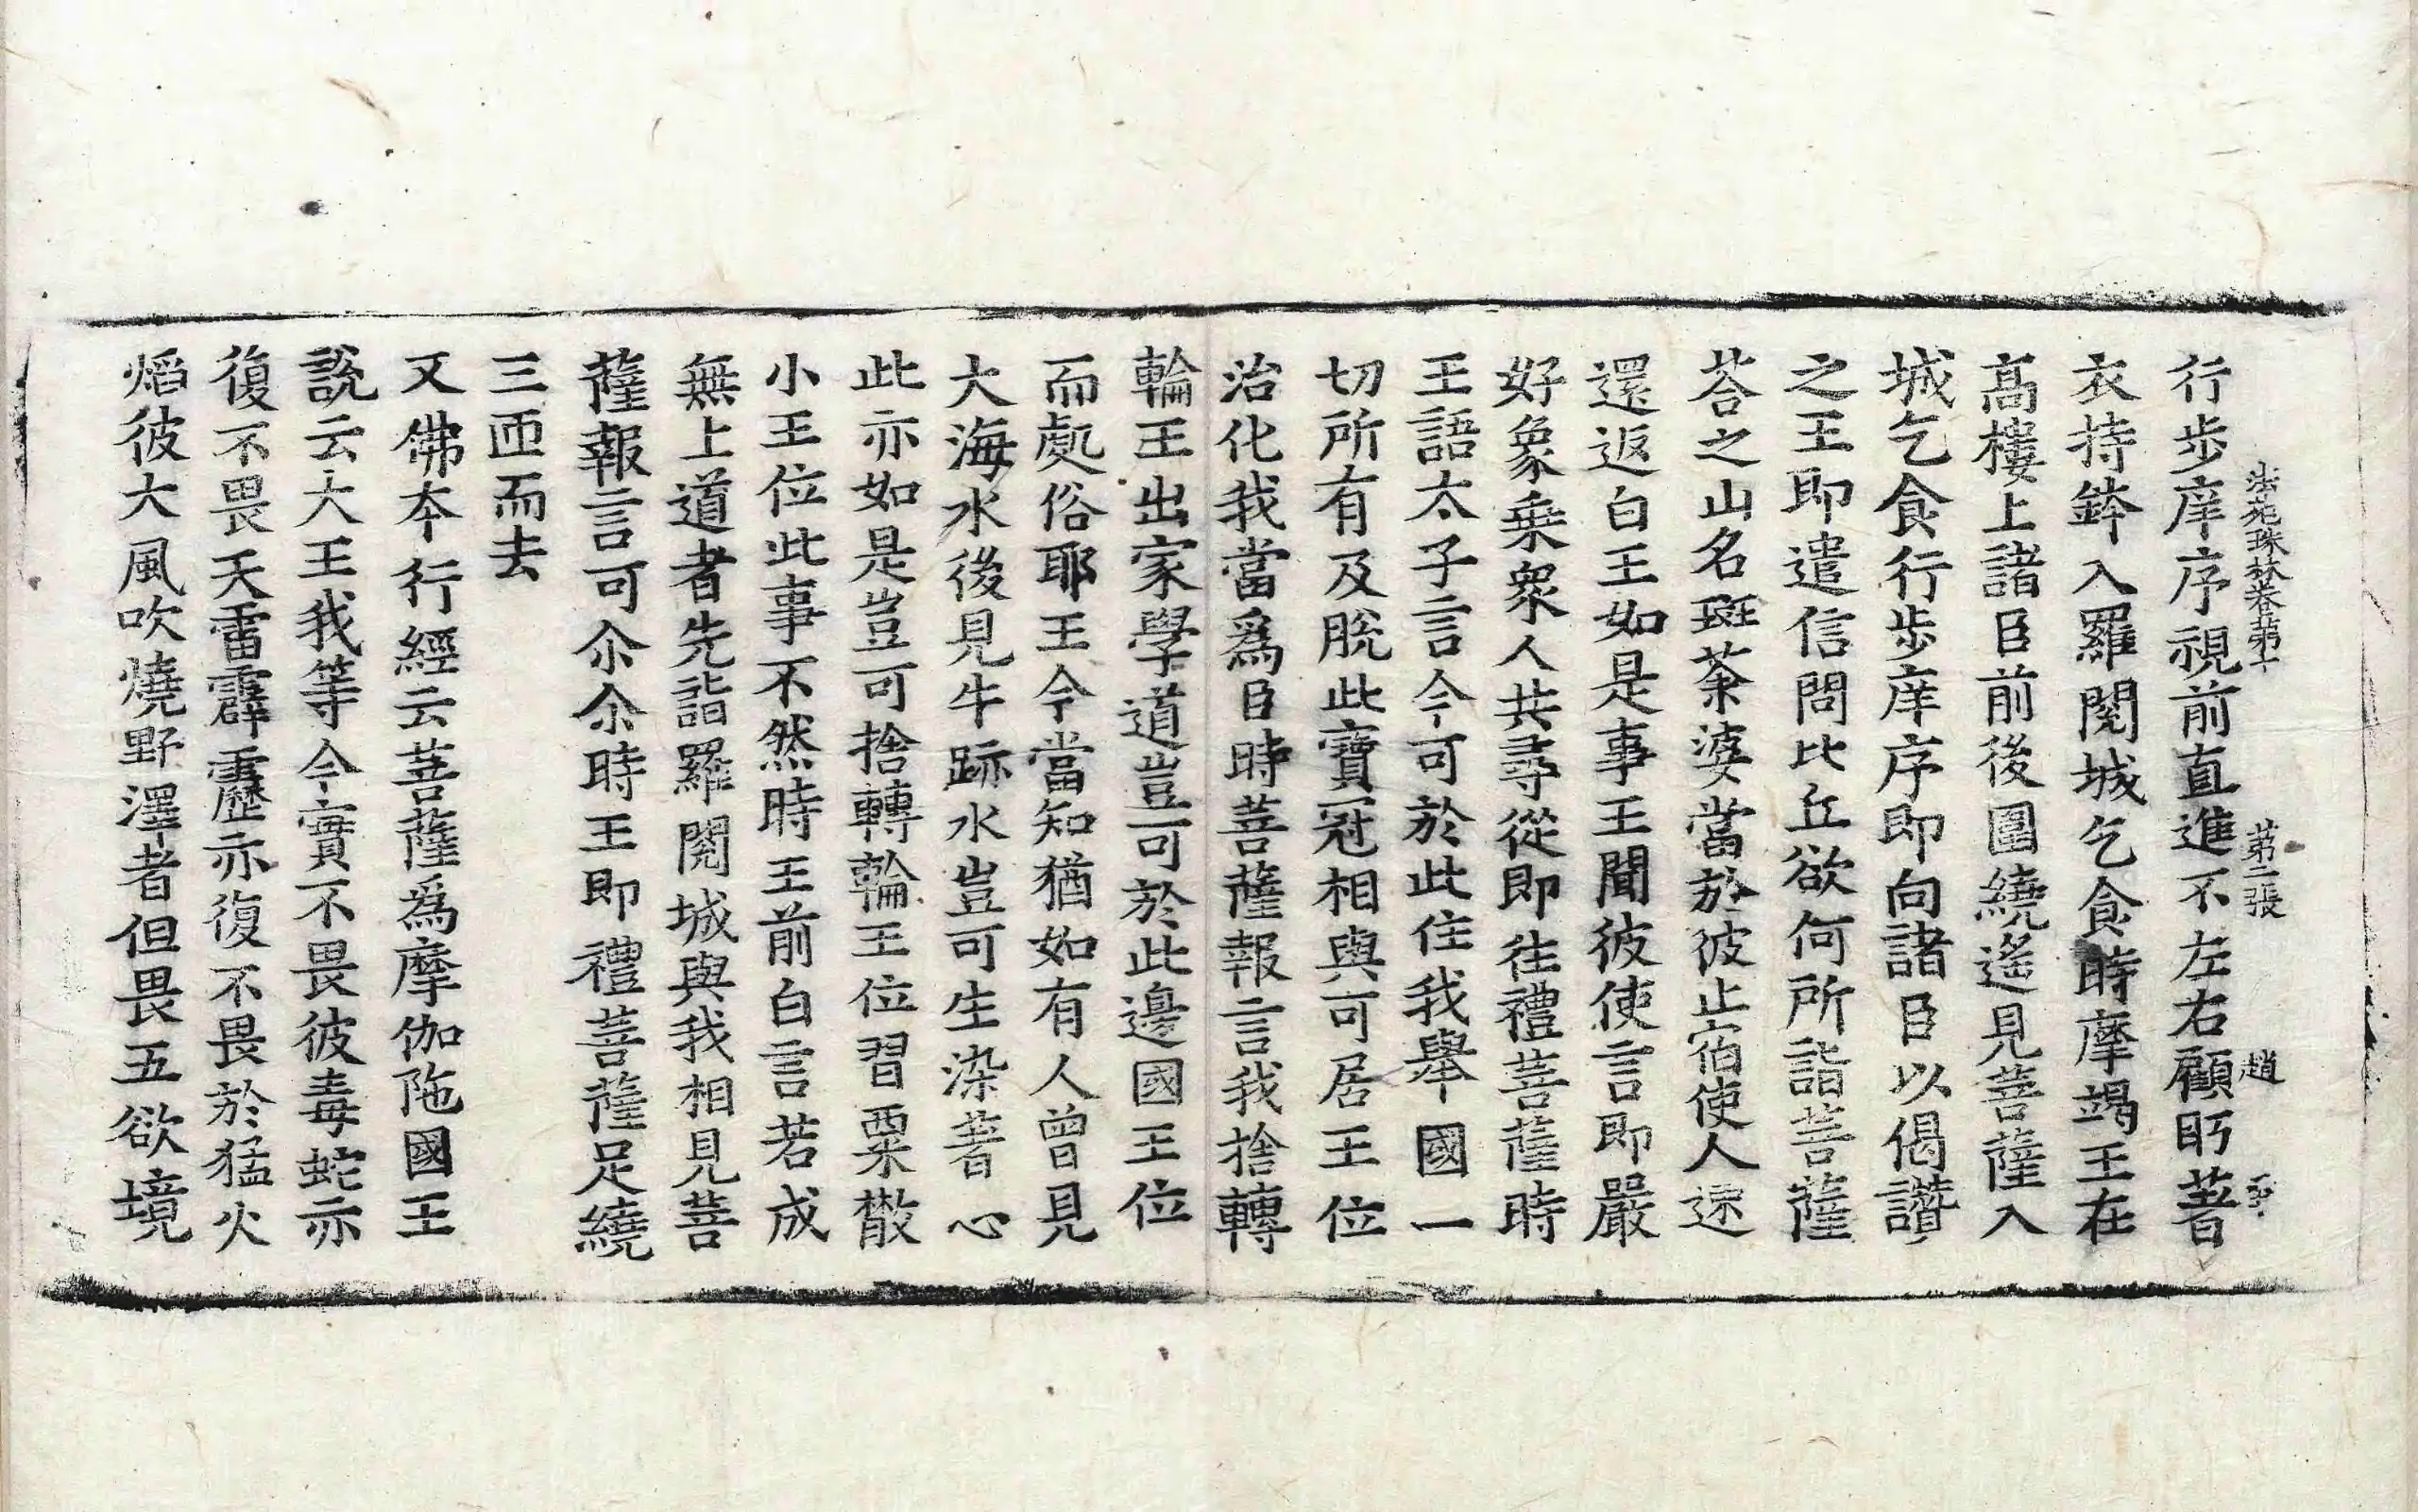 法苑珠林卷第十　第二張　趙
行步庠序視前直進不左右顧眄著
衣持鉢入羅閱城乞食時摩竭王在
高樓上諸臣前後圍繞遙見菩薩入
城乞食行步庠序即向諸臣以偈讃
之王即遣信問比丘欲何所詣菩薩
荅之山名斑荼婆當於彼止宿使人速
還返白王如是事王聞彼使言即嚴
好象乗衆人共尋從即往禮菩薩時
王語太子言今可於此住我舉國一
切所有及脫此寶冠相與可居王位
治化我當爲臣時菩薩報言我捨轉
輪王出家學道豈可於此邊國王位
而處俗耶王今當知猶如有人曾見
大海水後見牛跡水豈可生染著心
此亦如是豈可捨轉輪王位習粟散
小王位此事不然時王前白言若成
無上道者先詣羅閱城與我相見菩
薩報言可尒尒時王即禮菩薩足繞
三匝而去
又佛夲行經云菩薩爲摩伽陁國王
說云大王我等今實不畏彼毒蛇亦
復不畏天雷霹靂亦復不畏於猛火
熖彼大風吹燒野澤者但畏五欲境